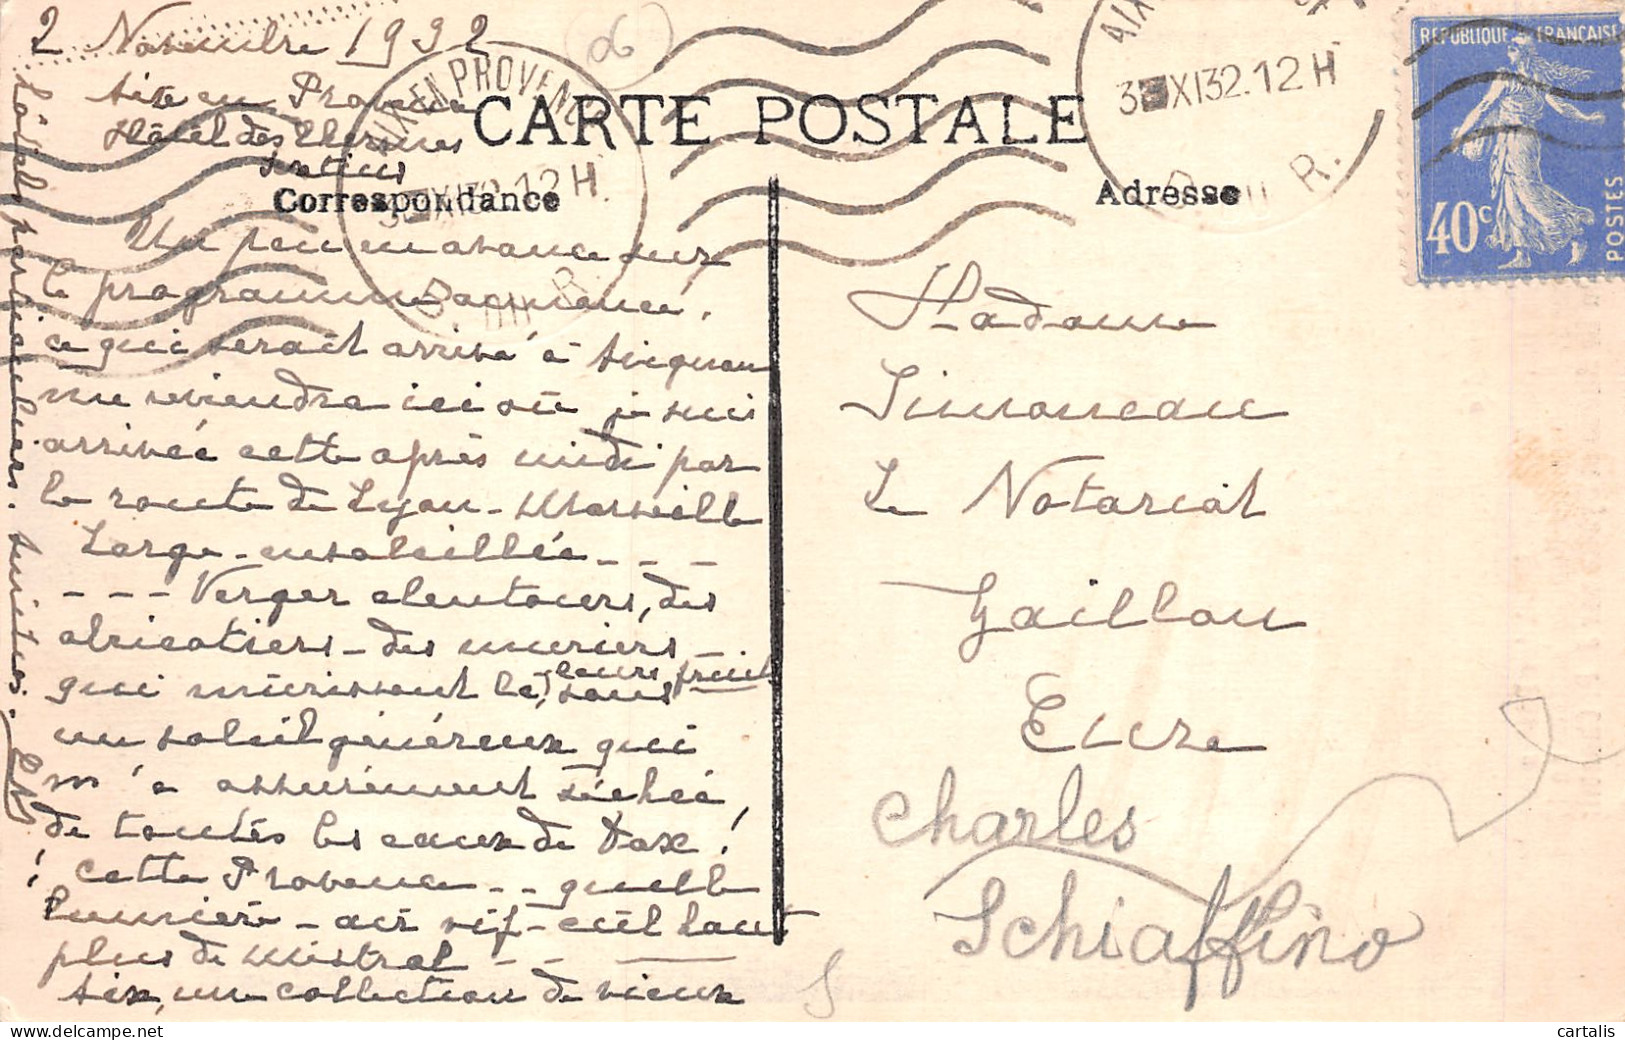 2 Novembre 1932
Aix en Provence
Hôtel des Thermes
Sextius
CARTE POSTALE
Correspondance
Adresse
AIX EN PROVENCE
3 XI 32. 12 H
AIX
3 XI 32. 12 H
R.
REPUBLIQUE FRANCAISE
40c
POSTES
Un peu en avance sur
le programme annoncé.
ce qui serait arrivé à Avignon
me viendra ici où je suis
arrivée cette après midi par
la route de Lyon - Marseille
Large - ensoleillée - - -
- - - Verger alentours, des
abricotiers - des muriers -
qui mûrissent là, leurs fruits sous
un soleil généreux qui
m'a assurément séchée
de toutes les eaux de Dax !
! cette Provence - - quelle
lumière - air vif - ciel haut
plus de mistral - - —
Aix, une collection de vieux
hôtels particuliers.
Madame
Simoneau
Le Notariat
Gaillon
Eure
Charles
Schiaffino
cartalis